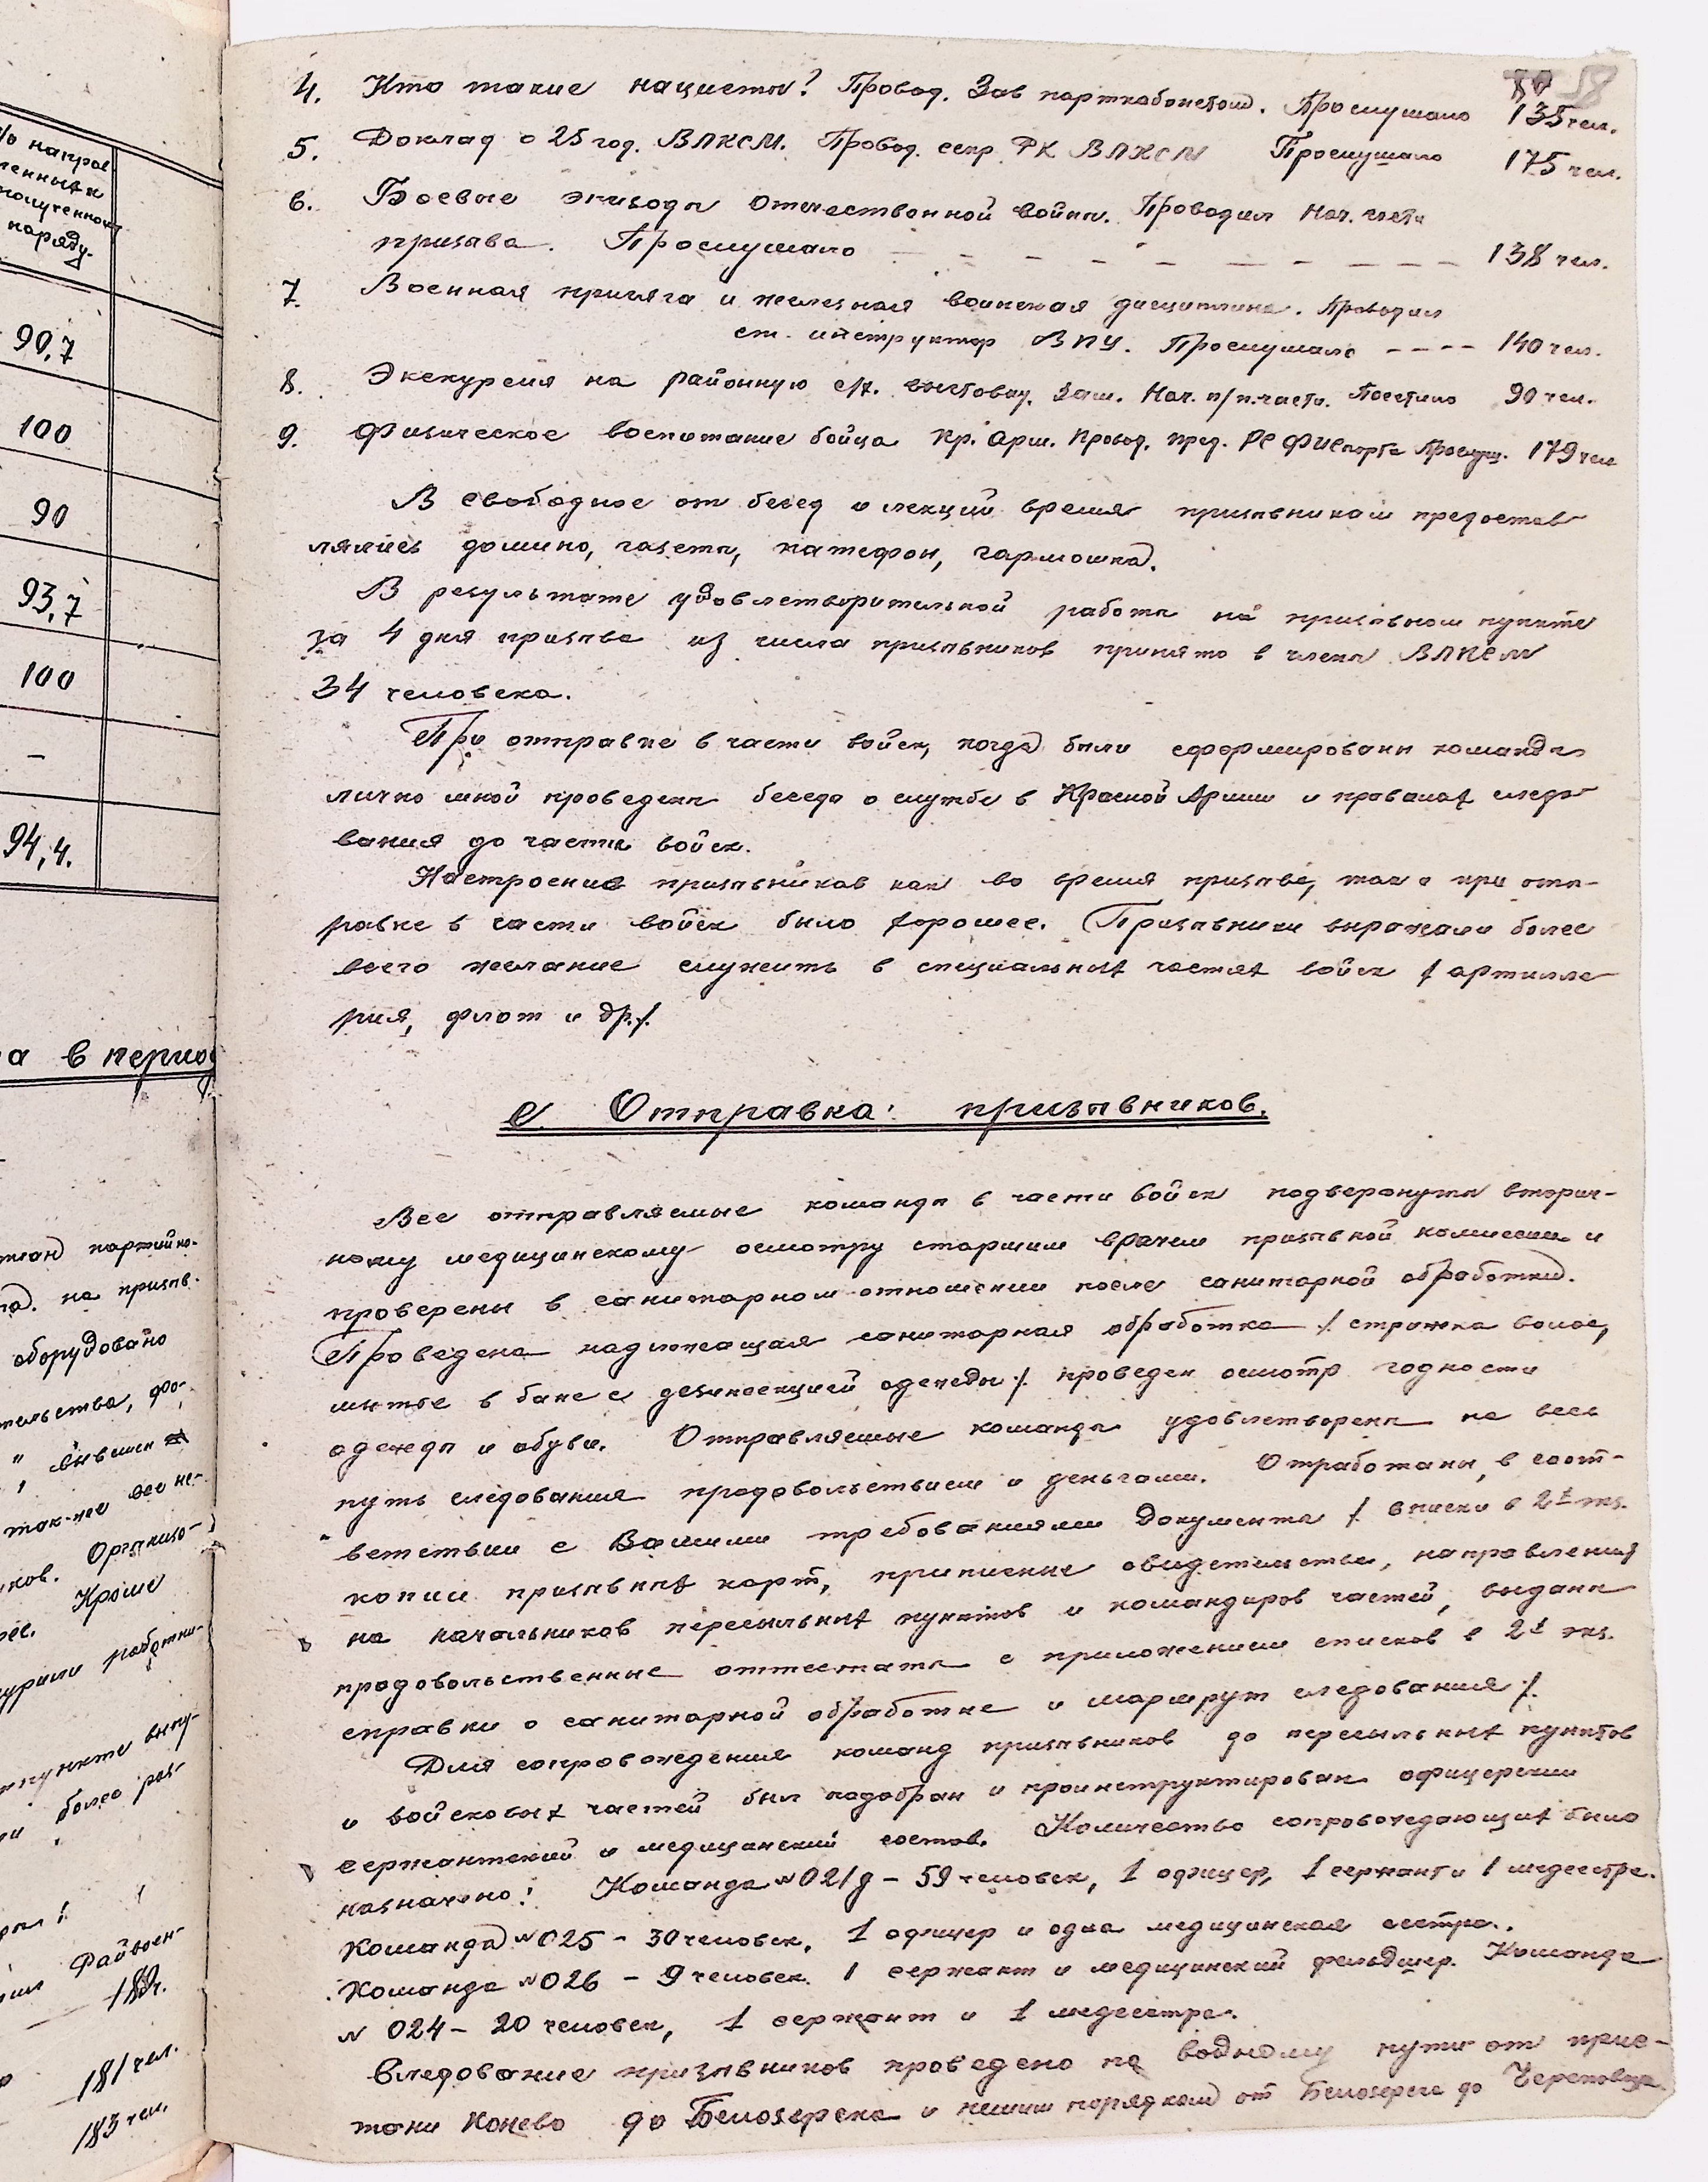 % направ
ленных к
полученному
наряду.
90,7
100
90
93,7
100
-
94,4.
а в период
партийно-
на призыв-
оборудовано
так-же все не-
Организо-
Кроме
пункте выпу-
более раз-
Райвоен-
181 чел.
183 чел.
58
4. Кто такие нацисты? Провод. Зав парткабинетом. Прослушало 135 чел.
5. Доклад о 25 год. ВЛКСМ. Провод. секр РК ВЛКСМ Прослушало 175 чел.
6. Боевые эпизоды Отечественной войны. Проводил Нач. части
призыва. Прослушало - - - - - - - - - 138 чел.
7. Военная присяга и железная воинская дисциплина. Проводил
ст. инструктор ВПУ. Прослушало ---- 140 чел.
8. Экскурсия на районную с/х. выставку. Зам. Нач. п/п.части. Посетило 90 чел.
9. Физическое воспитание бойца Кр. Арм. Провод. пред. РС ФИСпорта Прослуш. 179 чел
В свободное от бесед и лекций время призывникам предостав-
лялись домино, газеты, патефон, гармошка.
В результате удовлетворительной работы на призывном пункте
за 4 дня призыва из числа призывников принято в члены ВЛКСМ
34 человека.
При отправке в части войск, когда были сформированы команды
лично мной проведены беседы о службе в Красной Армии и правилах следо-
вания до части войск.
Настроение призывников как во время призыва, так и при отп-
равке в части войск было хорошее. Призывники выражали более
всего желание служить в специальных частях войск /артилле-
рия, флот и др./.
е. Отправка: призывников.
Все отправляемые команды в части войск подвергнуты вторич-
ному медицинскому осмотру старшим врачем призывной комиссии и
проверены в санитарном отношении после санитарной обработки.
Проведена надлежащая санитарная обработка /стрижка волос,
мытье в бане с дезинсекцией одежды/. проведен осмотр годности
одежды и обуви. Отправляемые команды удовлетворены на весь
путь следования продовольствием и деньгами. Отработаны, в соот-
ветствии с Вашими требованиями документы /. списки в 2х экз.
копии призывных карт, приписные свидетельства, направления
на начальников пересыльных пунктов и командиров частей, выданы
продовольственные аттестаты с приложением списков в 2х экз.
справки о санитарной обработке и маршрут следования/.
Для сопровождения команд призывников до пересыльных пунктов
и войсковых частей был подобран и проинструктирован офицерский
сержантский и медицинский состав. Количество сопровождающих было
назначено: Команда №021д - 59 человек, 1 офицер, 1 сержант и 1 медсестра.
Команда №025 - 30 человек, 1 офицер и одна медицинская сестра.
Команда №026 - 9 человек. 1 сержант и медицинский фельдшер. Команда
№ 024 - 20 человек, 1 сержант и 1 медсестра.
Следование призывников проведено по водному пути от прис-
тани Конево до Белозерска и пешим порядком от Белозерска до Череповца.